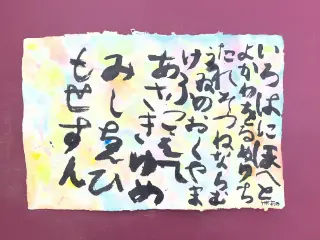 いろはにほへと
よかわをるぬりち
たれそつねならむ
うゐのおくやま
けふこえて
あさきゆめ
みしゑひ
もせすん